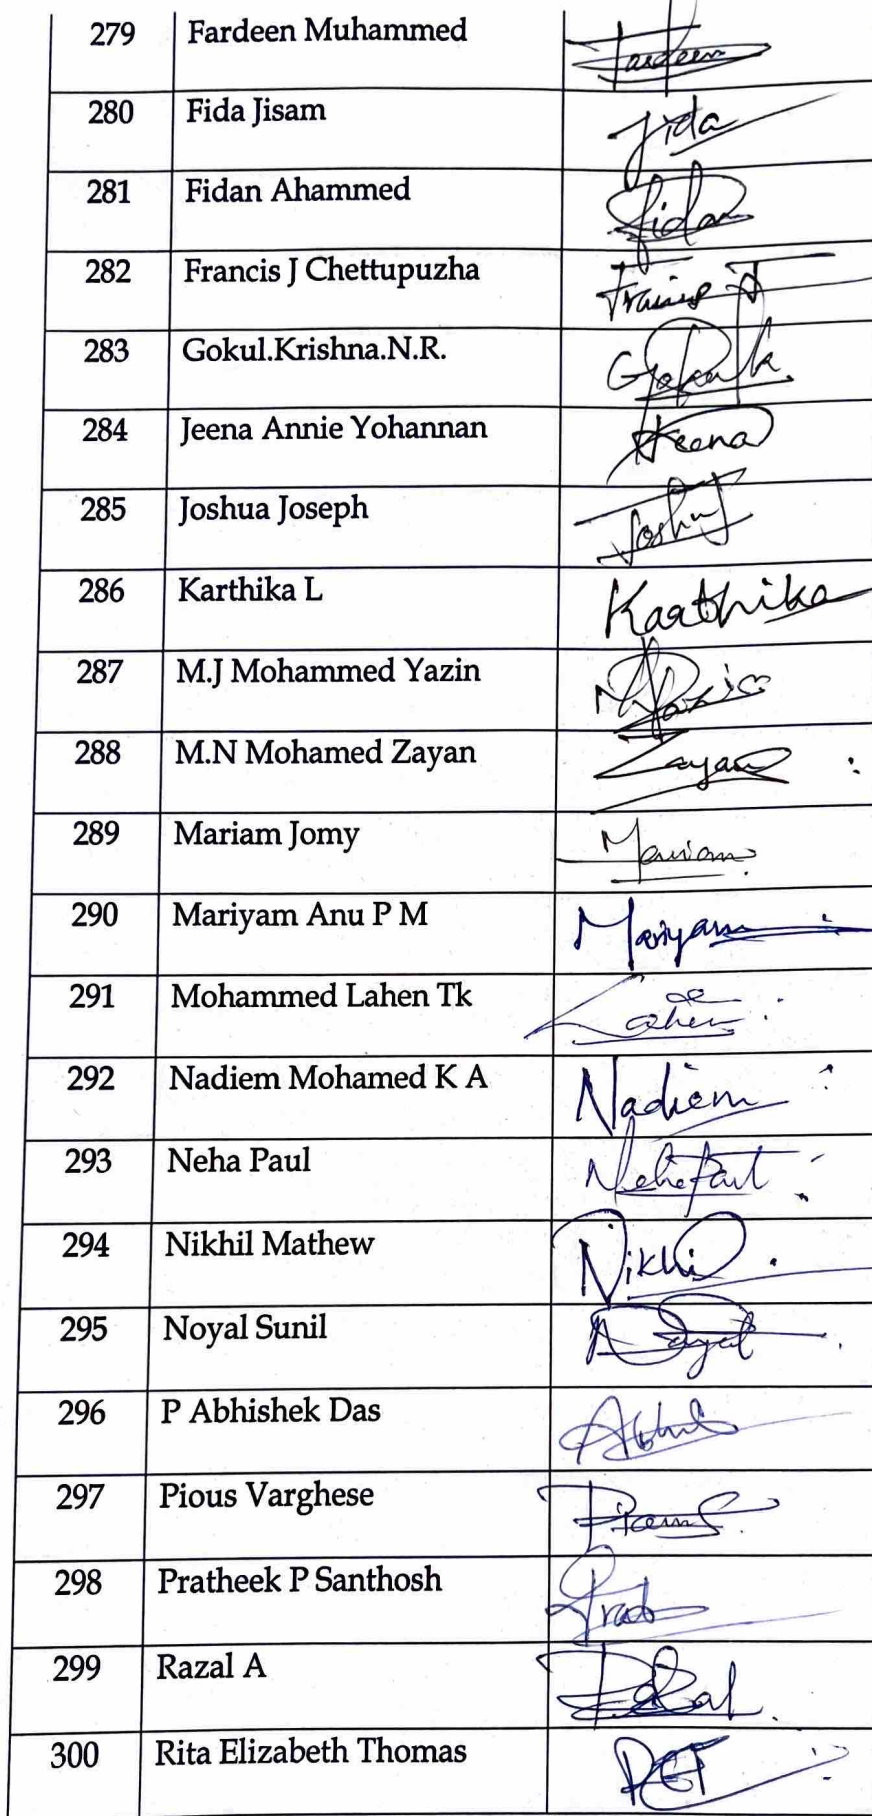 279 Fardeen Muhammed Fardeen
280 Fida Jisam Fida
281 Fidan Ahammed Fidan
282 Francis J Chettupuzha Francis J
283 Gokul.Krishna.N.R. Gokul k.
284 Jeena Annie Yohannan Jeena
285 Joshua Joseph Joshua J
286 Karthika L Karthika
287 M.J Mohammed Yazin
288 M.N Mohamed Zayan Zayan
289 Mariam Jomy Mariam
290 Mariyam Anu P M Mariyam
291 Mohammed Lahen Tk Lahen
292 Nadiem Mohamed K A Nadiem
293 Neha Paul Neha Paul
294 Nikhil Mathew Nikhil
295 Noyal Sunil
296 P Abhishek Das
297 Pious Varghese
298 Pratheek P Santhosh
299 Razal A Razal
300 Rita Elizabeth Thomas RET